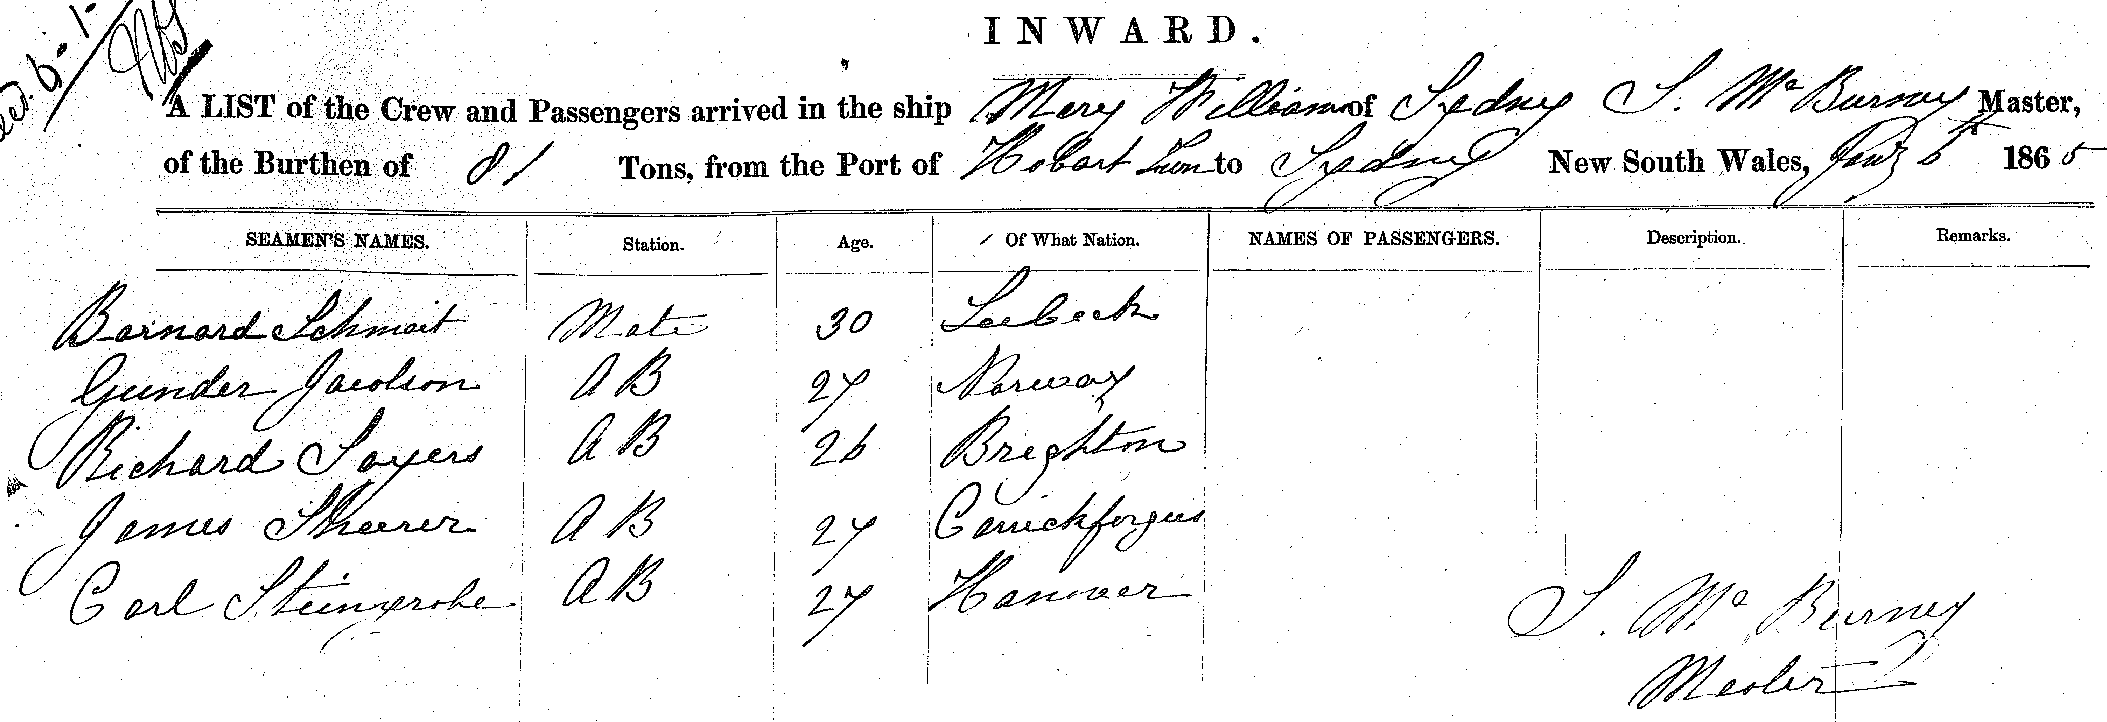 INWARD.
A LIST of the Crew and Passengers arrived in the ship Mary Williams of Sydney S. Mc Burney Master,
of the Burthen of 81 Tons, from the Port of Hobart Town to Sydney New South Wales, Jany 6th 1865
SEAMEN'S NAMES. Station. Age. Of What Nation. NAMES OF PASSENGERS. Description. Remarks.
Barnard Schmait Mate 30 Leebeck
Gunder Jacolson A B 27 Norway
Richard Sayers A B 26 Brighton
James Sheerer A B 27 Carrickforgus
Carl Steingrobe A B 27 Hanover
S. Mc Burney
Master